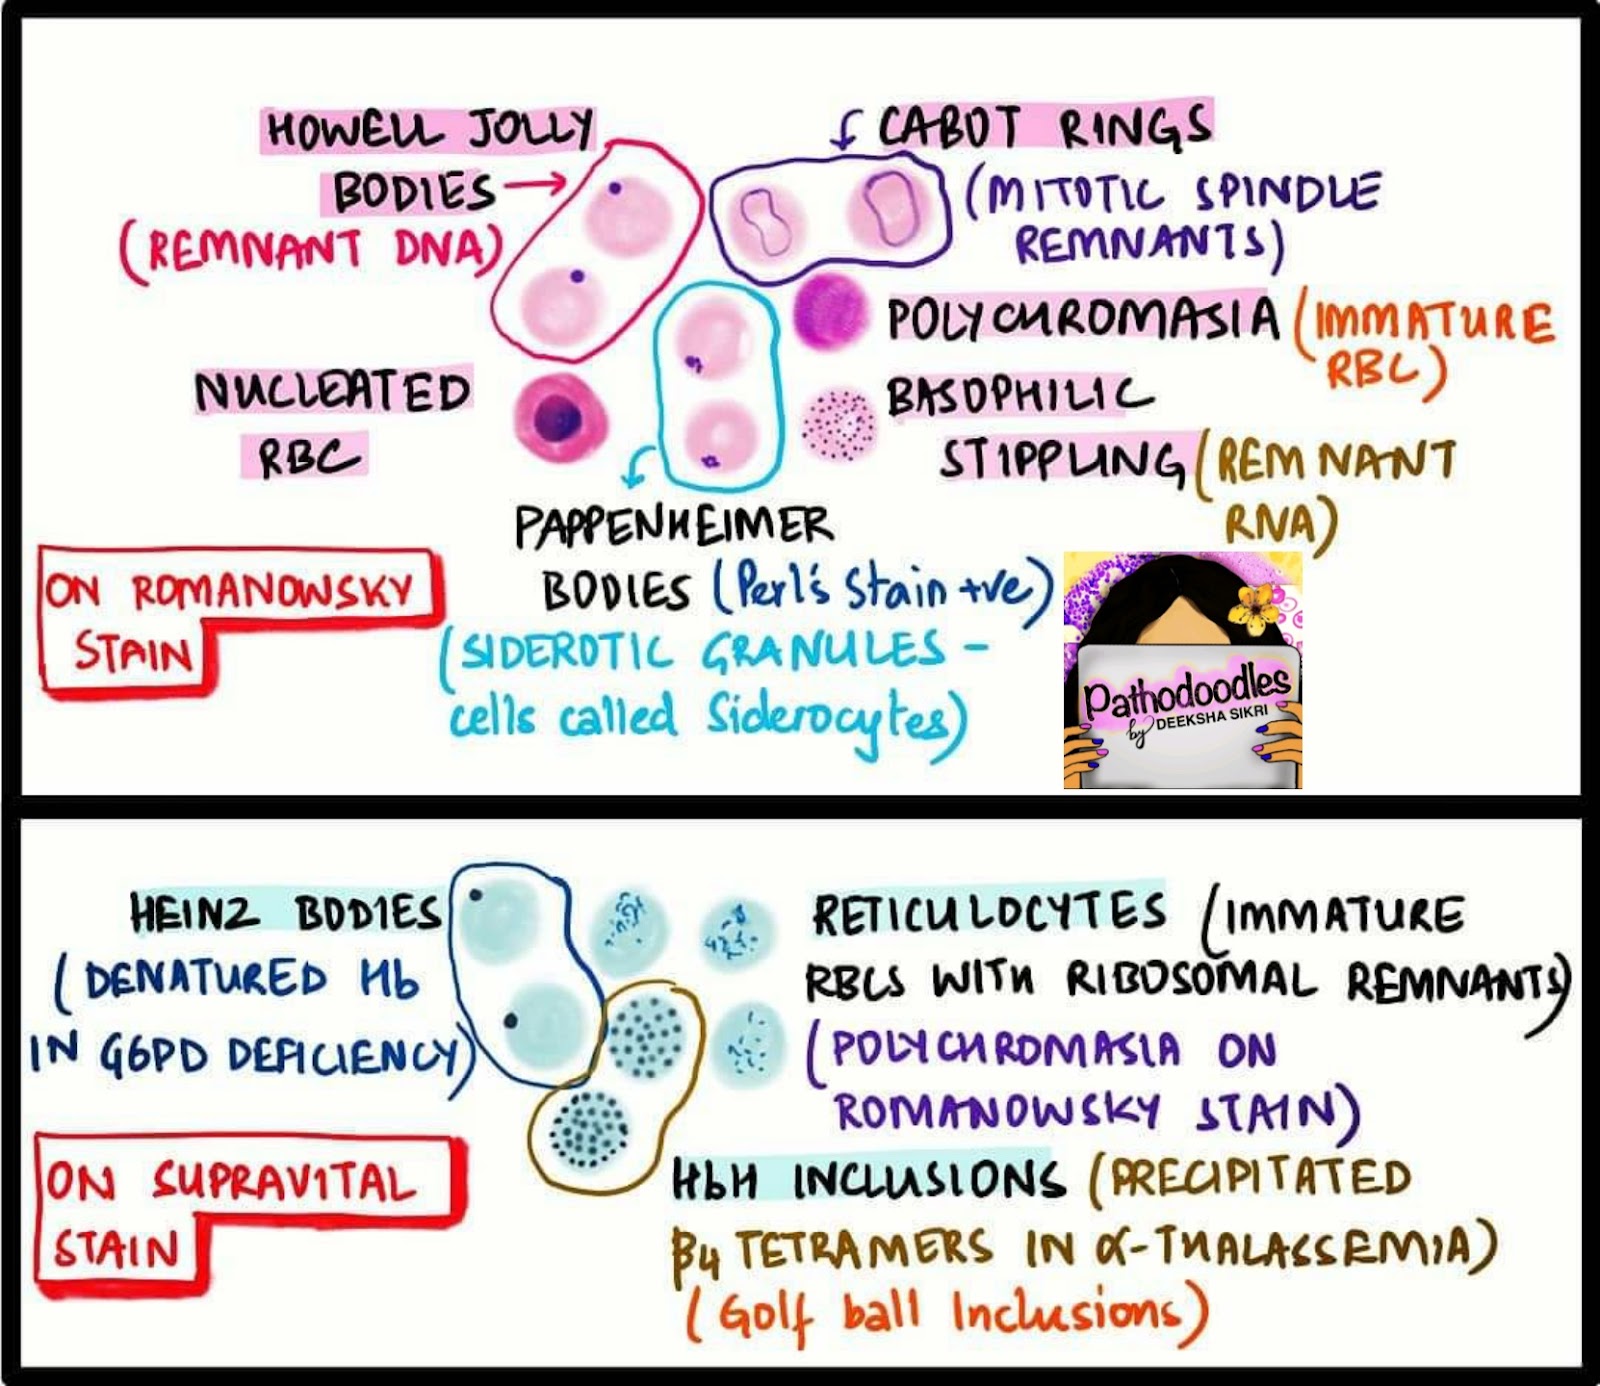 HOWELL JOLLY
BODIES
(REMNANT DNA)
CABOT RINGS
(MITOTIC SPINDLE
REMNANTS)
POLYCHROMASIA (IMMATURE
RBC)
NUCLEATED
RBC
BASOPHILIC
STIPPLING (REMNANT
RNA)
PAPPENHEIMER
BODIES (Perl's Stain +ve)
(SIDEROTIC GRANULES -
cells called Siderocytes)
ON ROMANOWSKY
STAIN
Pathodoodles
by DEEKSHA SIKRI
HEINZ BODIES
(DENATURED Hb
IN G6PD DEFICIENCY)
RETICULOCYTES (IMMATURE
RBCS WITH RIBOSOMAL REMNANTS)
(POLYCHROMASIA ON
ROMANOWSKY STAIN)
HbH INCLUSIONS (PRECIPITATED
β4 TETRAMERS IN α-THALASSEMIA)
(Golf ball Inclusions)
ON SUPRAVITAL
STAIN